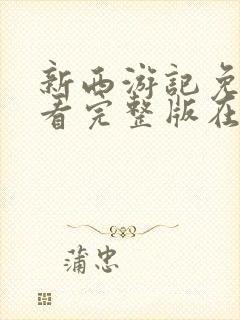 新西游记免
看完整版在
蒲忠